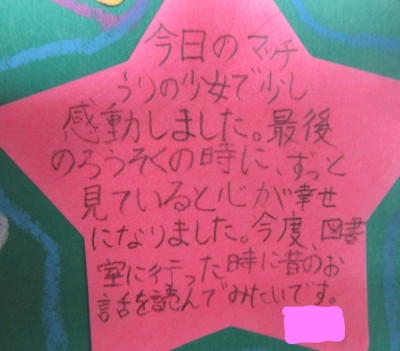 今日のマッチ
うりの少女で少し
感動しました。最後
のろうそくの時に、ずっと
見ていると心が幸せ
になりました。今度、図書
室に行った時に昔のお
話を読んでみたいです。